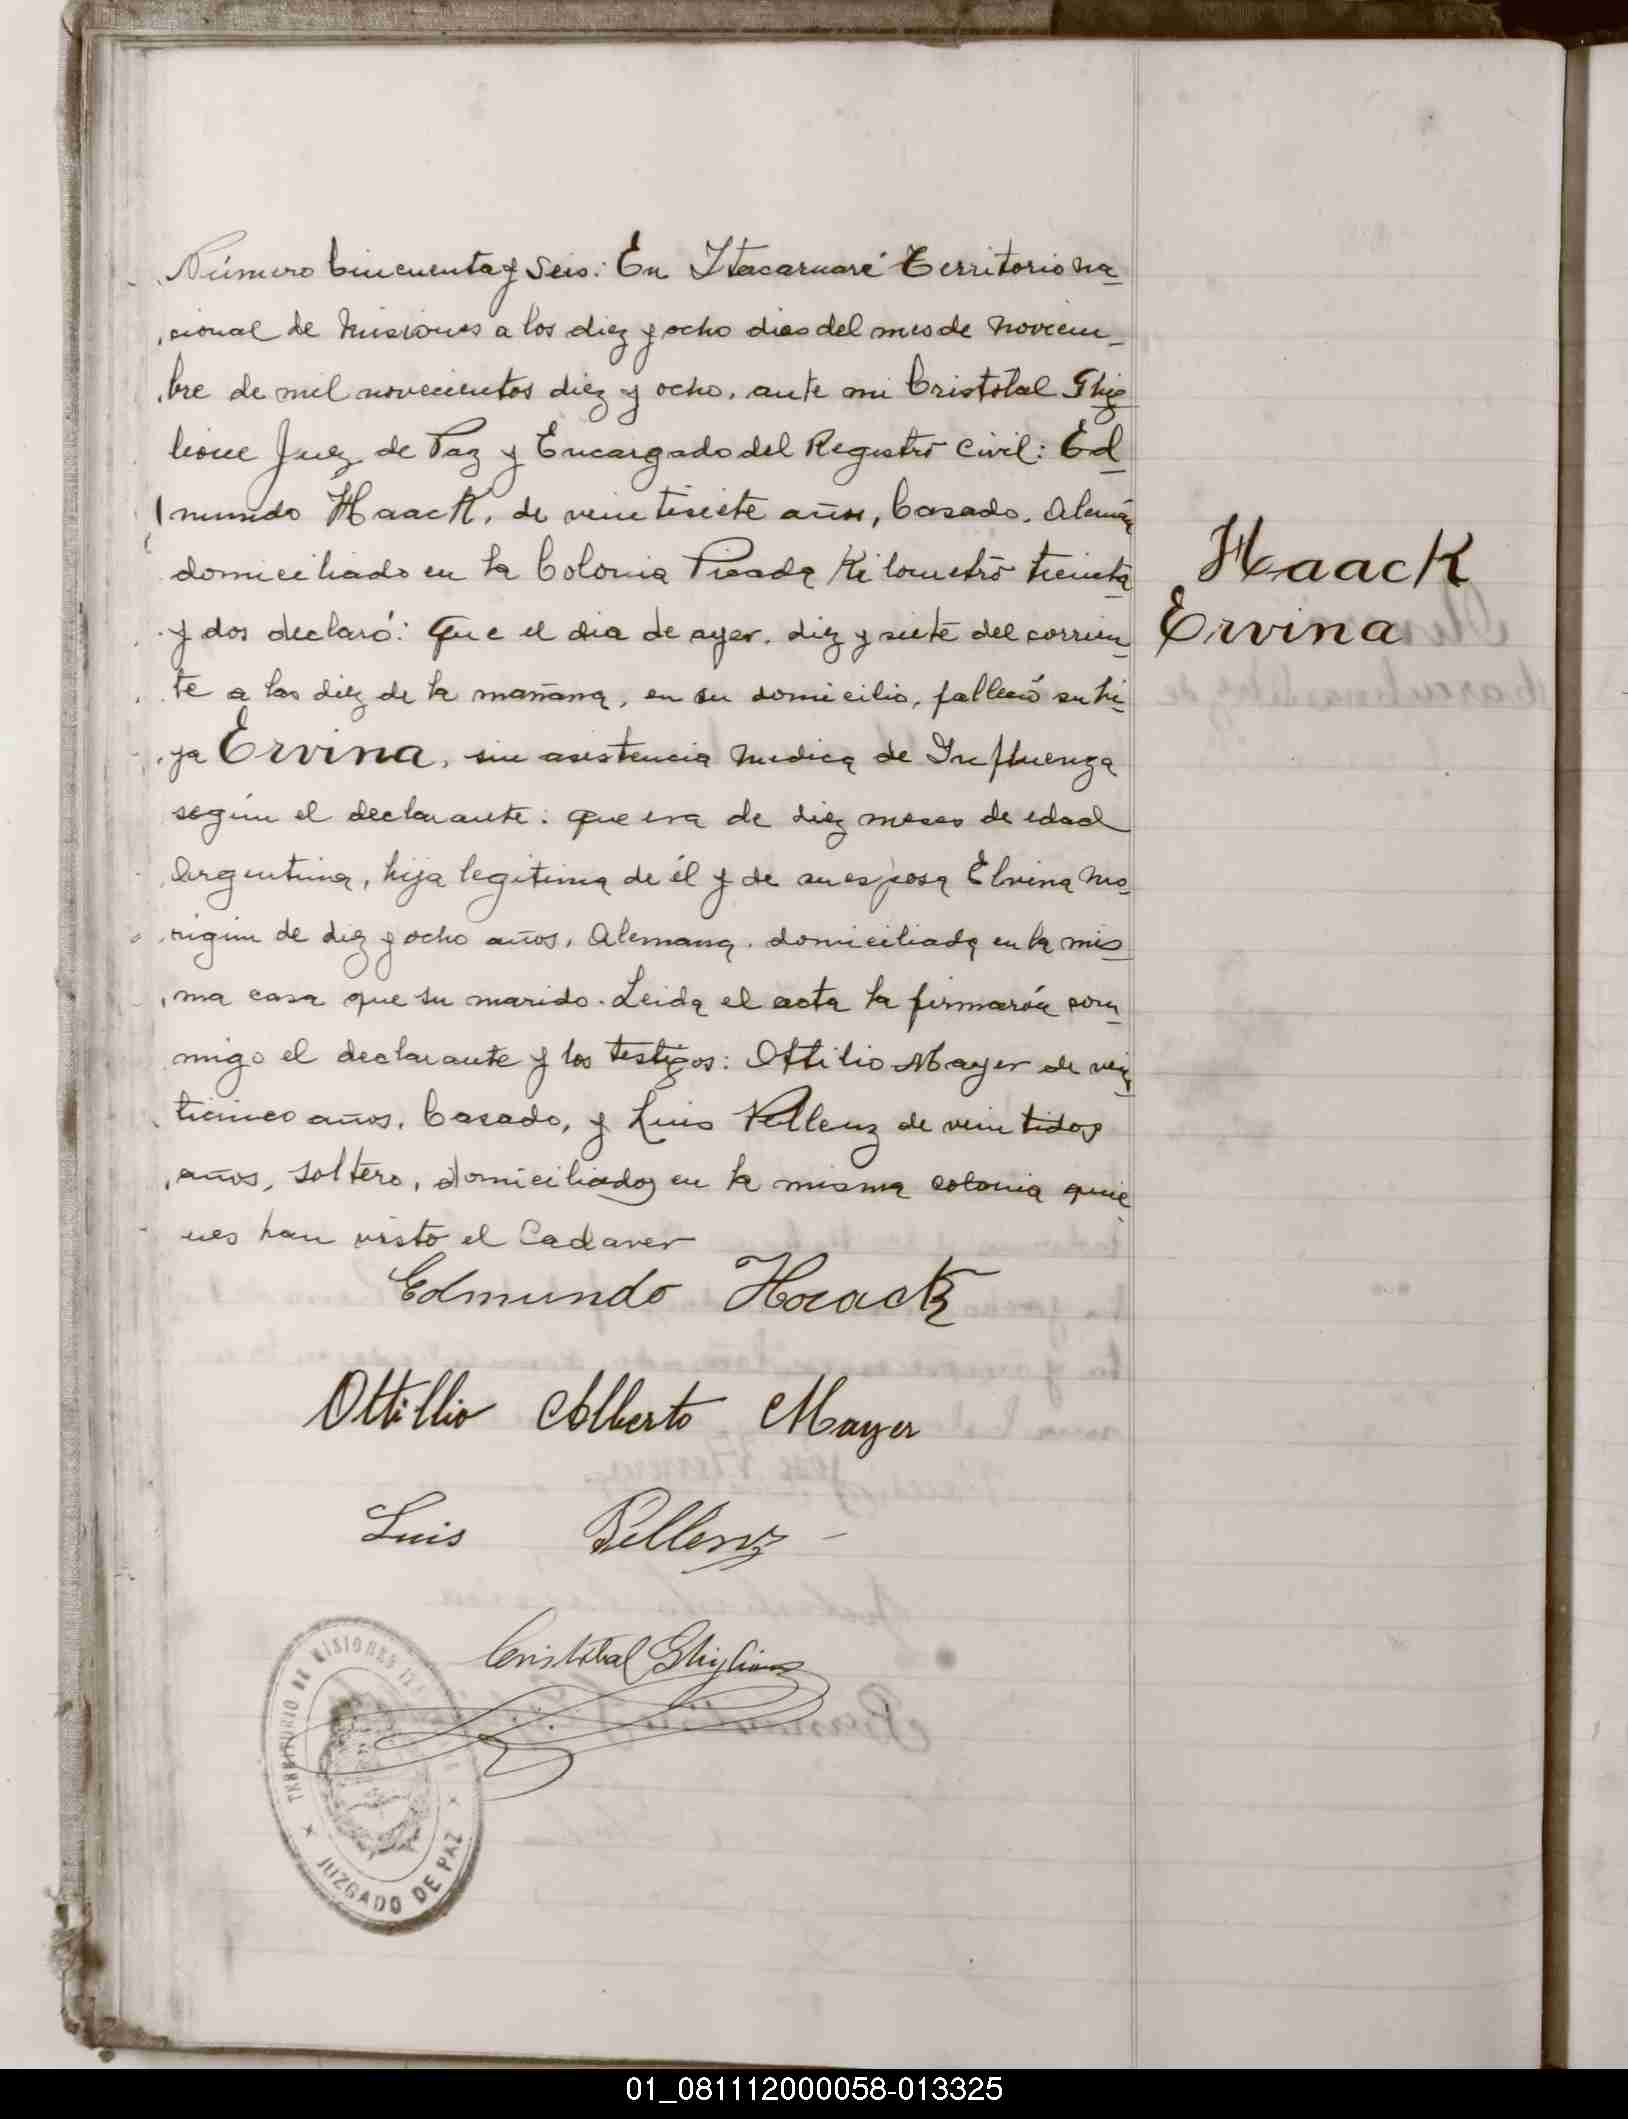 Número Cincuenta y Seis: En Itacaruaré Territorio Na-
cional de Misiones a los diez y ocho dias del mes de Noviem-
bre de mil novecientos diez y ocho, ante mi Cristobal Ghig
lione Juez de Paz y Encargado del Registro Civil: Ed-
mundo Haack, de veintisiete años, Casado, Alemán
domiciliado en la Colonia Picada Kilometro treinta
y dos declaró: Que el dia de ayer, diez y siete del corrien-
te a las diez de la mañana, en su domicilio, falleció su hi-
ja Ervina, sin asistencia medica de Influenza
según el declarante: que era de diez meses de edad
Argentina, hija legitima de él y de su esposa Elvina Mo-
rigim de diez y ocho años, Alemana, domiciliada en la mis-
ma casa que su marido. Leida el acta la firmarón com-
migo el declarante y los testigos: Ottilio Mayer de vein-
ticinco años, Casado, y Luis Pellenz de veintidos
años, soltero, domiciliados en la misma colonia quie
nes han visto el Cadaver
Haack
Ervina
Edmundo Haack
Ottillio Alberto Mayer
Luis Pellenz
Cristobal Ghiglione
TERRITORIO DE MISIONES
JUZGADO DE PAZ
01_081112000058-013325